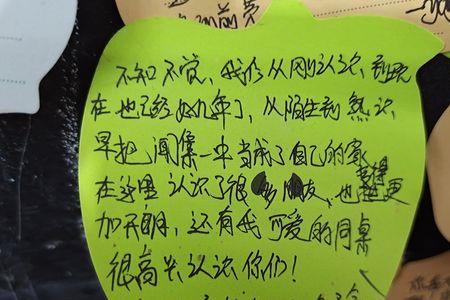 不知不觉,我们从刚认识,到现
在也已经好几年了,从陌生到熟识
早把闻集一中当成了自己的家
在这里认识了很多朋友,也变得更
加开朗,还有我可爱的同桌
很高兴认识你们!